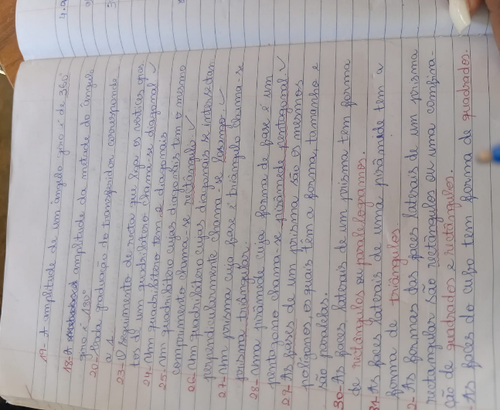 17- A amplitude de um ângulo giro é de 360º
18- A amplitude da metade do ângulo
giro é 180º
20- Cada graduação do transferidor corresponde
a 1
23- O segmento de recta que liga os vértices opos
tos de um quadrilátero chama-se diagonal
24- Um quadrilátero tem 2 diagonais
25- Um quadrilátero cujas diagonais têm o mesmo
comprimento chama-se rectângulo
26- Um quadrilátero cujas diagonais se intersectam
perpendicularmente chama-se losango
27- Um prisma cuja base é triângulo chama-se
prisma triangular.
28- Uma pirâmide cuja forma da base é um
pentágono chama-se pirâmide pentagonal
29- As bases de um prisma são os mesmos
polígonos os quais têm a forma, tamanho e
são paralelas.
30- As faces laterais de um prisma têm forma
de rectângulos ou paralelogramos.
31- As faces laterais de uma pirâmide têm a
forma de triângulos
- As formas das faces laterais de um prisma
rectangular são rectângulos ou uma combina-
ção de quadrados e rectângulos.
- As faces do cubo têm forma de quadrados.